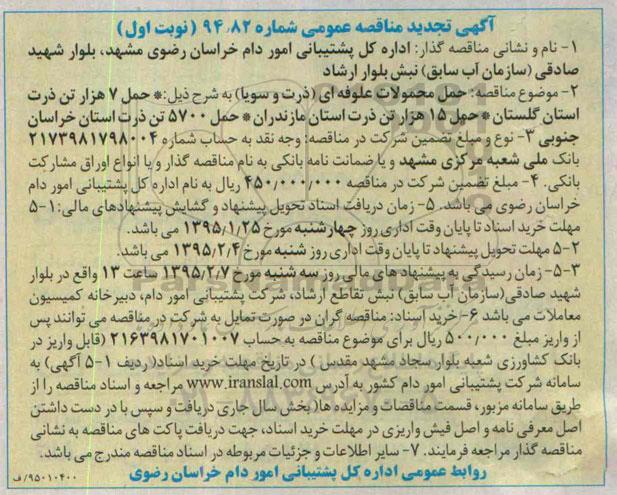 آگهی تجدید مناقصه عمومی شماره ۹۴،۸۲ (نوبت اول)
۱- نام و نشانی مناقصه گذار: اداره کل پشتیبانی امور دام خراسان رضوی مشهد، بلوار شهید
صادقی (سازمان آب سابق) نبش بلوار ارشاد
۲- موضوع مناقصه: حمل محمولات علوفه ای (ذرت و سویا) به شرح ذیل:* حمل ۷ هزار تن ذرت
استان گلستان * حمل ۱۵ هزار تن ذرت استان مازندران * حمل ۵۷۰۰ تن ذرت استان خراسان
جنوبی ۳- نوع و مبلغ تضمین شرکت در مناقصه: وجه نقد به حساب شماره ۲۱۷۳۹۸۱۷۹۸۰۰۴
بانک ملی شعبه مرکزی مشهد و یا ضمانت نامه بانکی به نام مناقصه گذار و یا انواع اوراق مشارکت
بانکی. ۴- مبلغ تضمین شرکت در مناقصه ۴۵۰/۰۰۰/۰۰۰ ریال به نام اداره کل پشتیبانی امور دام
خراسان رضوی می باشد. ۵- زمان دریافت اسناد تحویل پیشنهاد و گشایش پیشنهادهای مالی: ۱-۵
مهلت خرید اسناد تا پایان وقت اداری روز چهارشنبه مورخ ۱۳۹۵/۱/۲۵ می باشد.
۵-۲ مهلت تحویل پیشنهاد تا پایان وقت اداری روز شنبه مورخ ۱۳۹۵/۲/۴ می باشد.
۵-۳- زمان رسیدگی به پیشنهاد های مالی روز سه شنبه مورخ ۱۳۹۵/۲/۷ ساعت ۱۳ واقع در بلوار
شهید صادقی(سازمان آب سابق) نبش تقاطع ارشاد، شرکت پشتیبانی امور دام، دبیرخانه کمیسیون
معاملات می باشد ۶-خرید اسناد: مناقصه گران در صورت تمایل به شرکت در مناقصه می توانند پس
از واریز مبلغ ۵۰۰/۰۰۰ ریال برای موضوع مناقصه به حساب ۲۱۶۳۹۸۱۷۰۱۰۰۷ (قابل واریز در
بانک کشاورزی شعبه بلوار سجاد مشهد مقدس ) در تاریخ مهلت خرید اسناد( ردیف ۱-۵ آگهی) به
سامانه شرکت پشتیبانی امور دام کشور به آدرس www.iranslal.com مراجعه و اسناد مناقصه را از
طریق سامانه مزبور، قسمت مناقصات و مزایده ها(بخش سال جاری دریافت و سپس با در دست داشتن
اصل معرفی نامه و اصل فیش واریزی در مهلت خرید اسناد، جهت دریافت پاکت های مناقصه به نشانی
مناقصه گذار مراجعه فرمایند. ۷- سایر اطلاعات و جزئیات مربوطه در اسناد مناقصه مندرج می باشد.
روابط عمومی اداره کل پشتیبانی امور دام خراسان رضوی
۹۵۰۱۰۴۰۰/ف